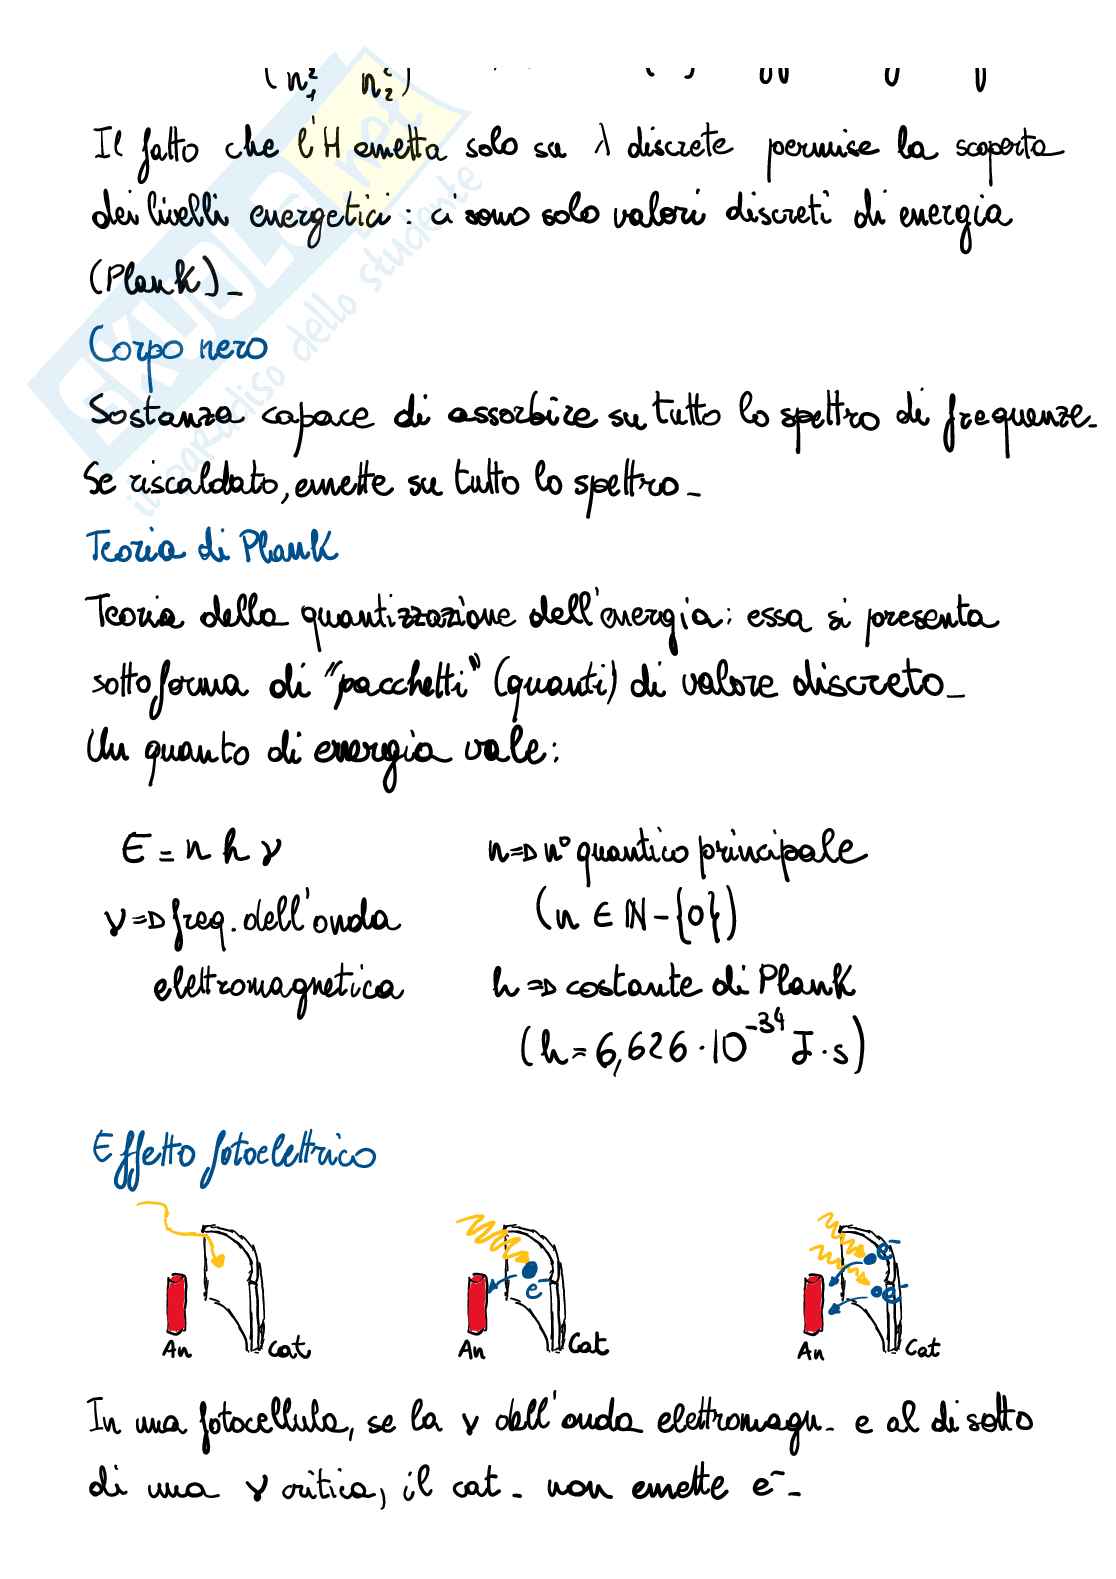 (n₁² n₂²)
Il fatto che l'H emetta solo su λ discrete permise la scoperta
dei livelli energetici : ci sono solo valori discreti di energia
(Plank)_
Corpo nero
Sostanza capace di assorbire su tutto lo spettro di frequenze_
Se riscaldato, emette su tutto lo spettro_
Teoria di Plank
Teoria della quantizzazione dell'energia: essa si presenta
sottoforma di "pacchetti" (quanti) di valore discreto_
Un quanto di energia vale:
E = n h ν
n => n° quantico principale
(n ∈ ℕ - {0})
ν => freq. dell'onda
elettromagnetica
h => costante di Plank
(h = 6,626 · 10⁻³⁴ J · s)
Effetto fotoelettrico
An Cat
e⁻
An Cat
e⁻
e⁻
An Cat
In una fotocellula, se la ν dell'onda elettromagn_ e al di sotto
di una ν critica, il cat_ non emette e⁻_
skuola.net
il paradiso dello studente